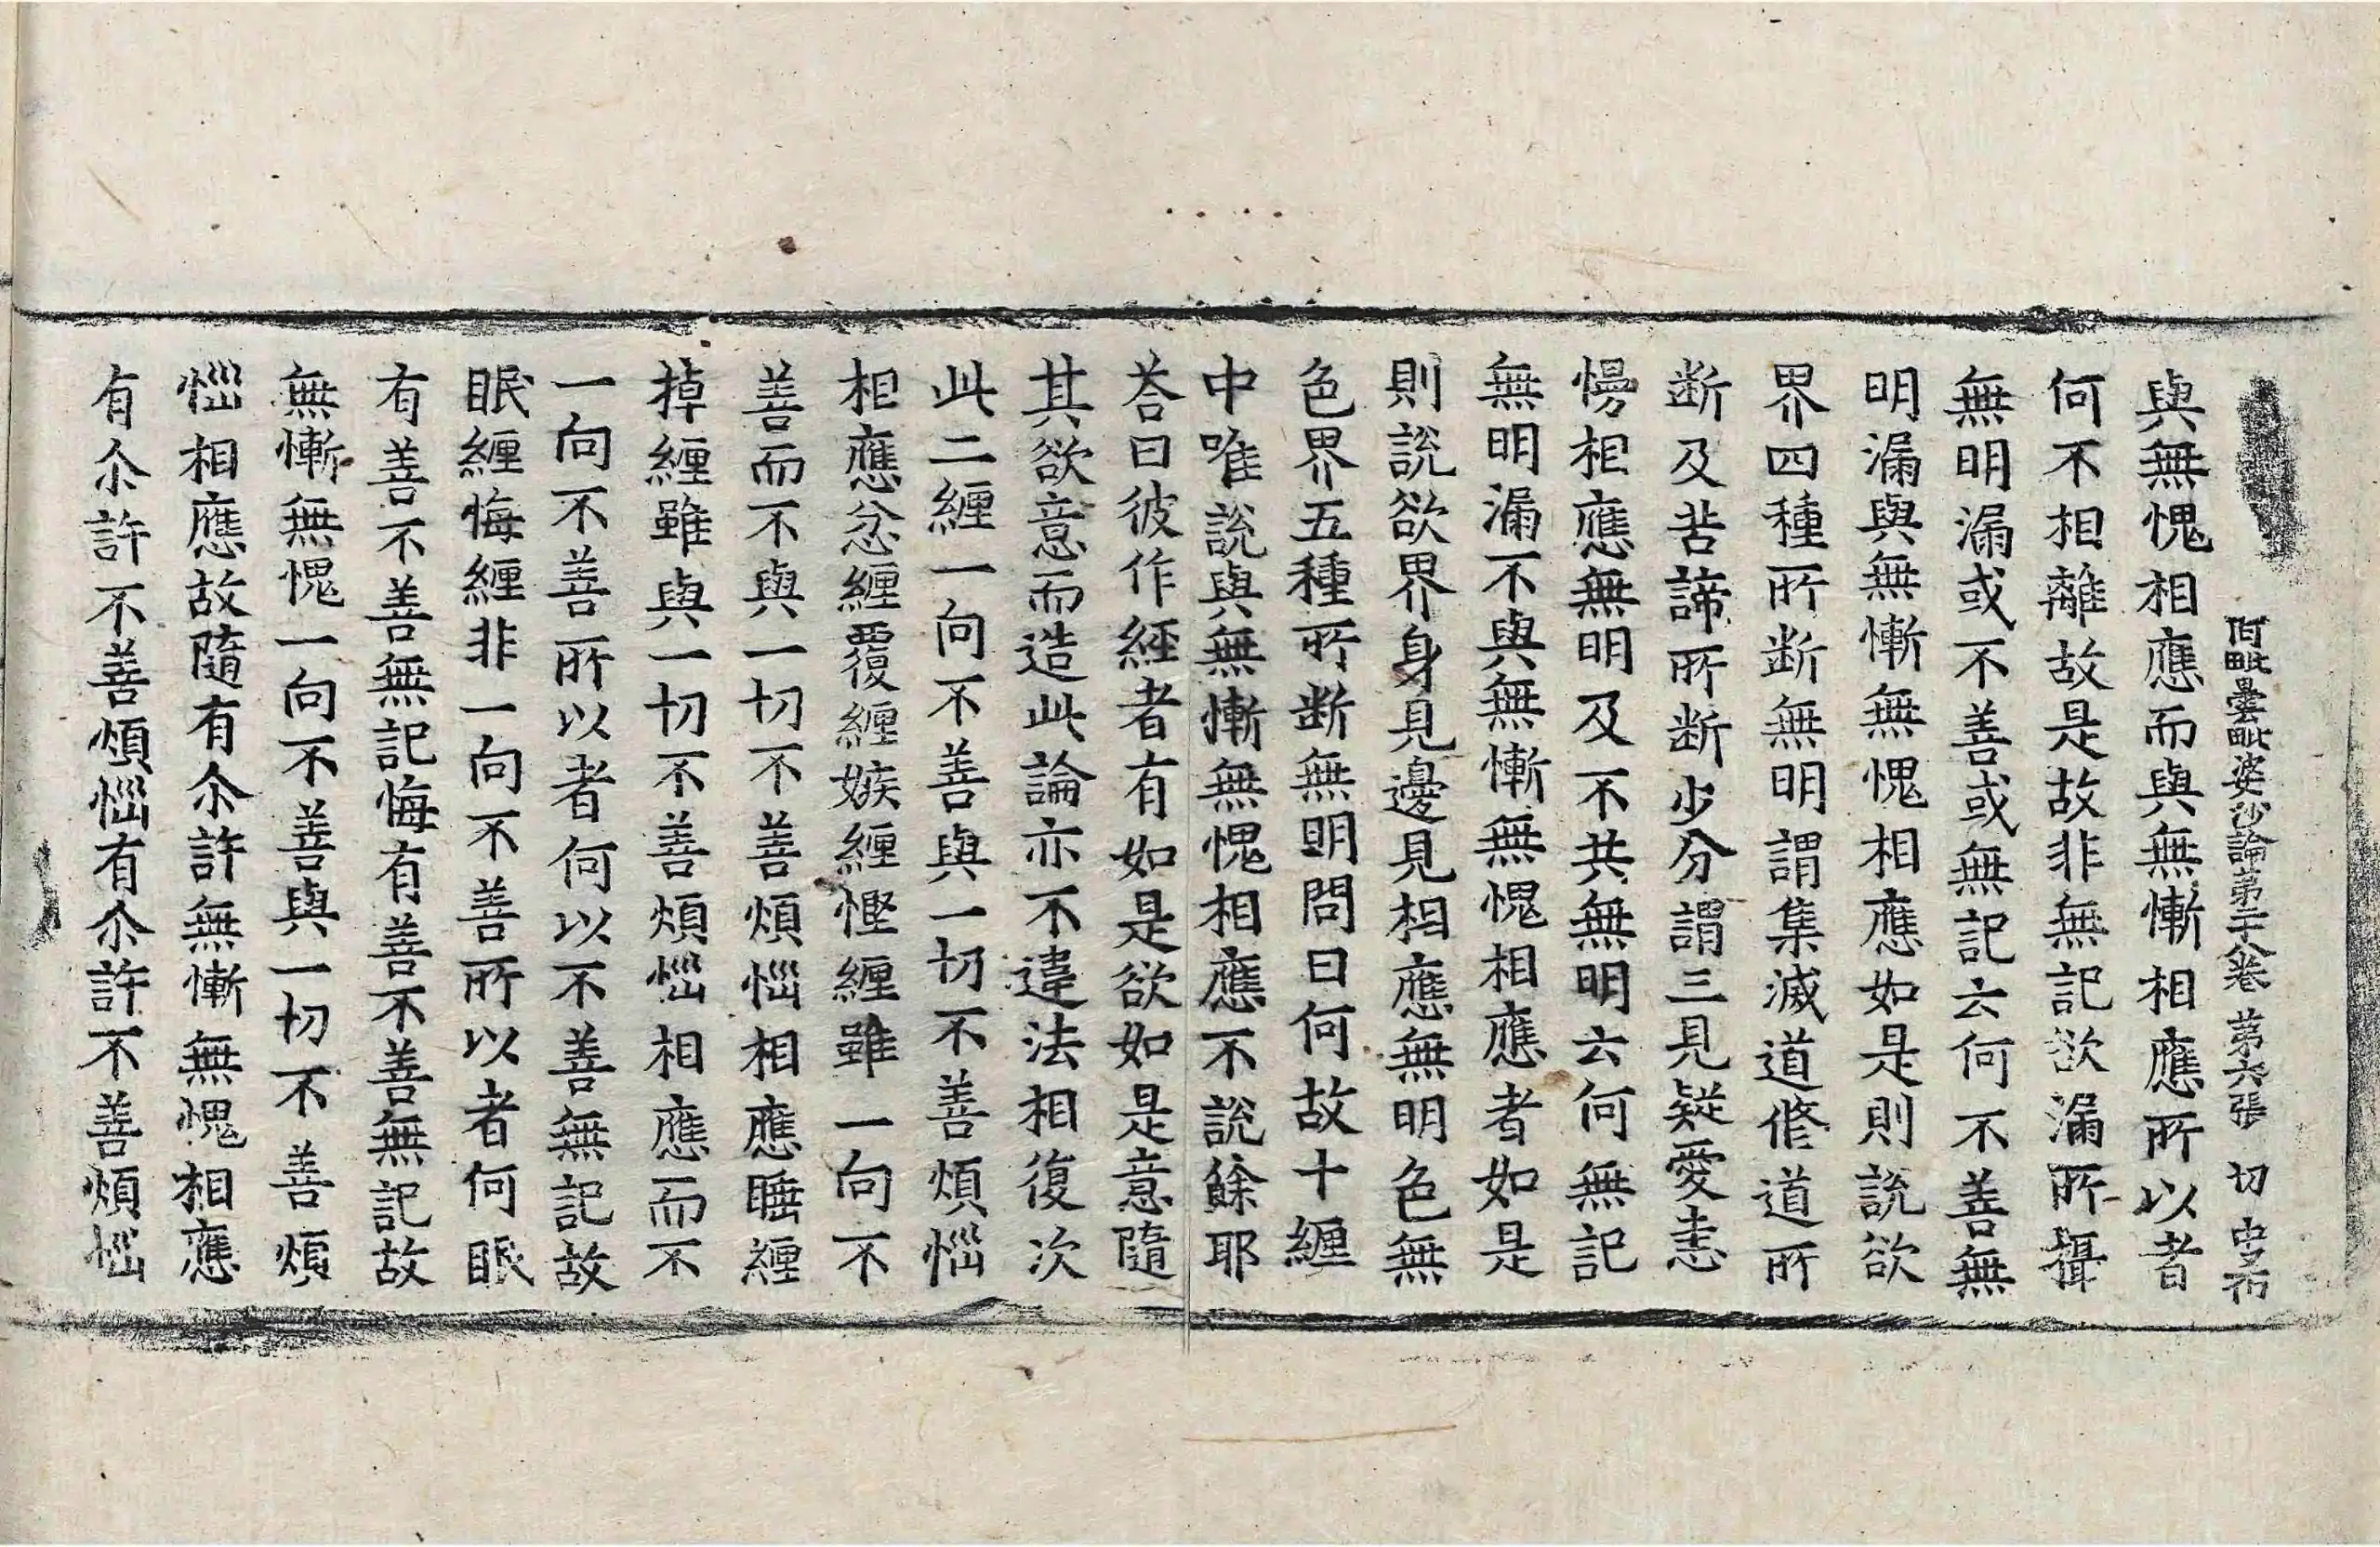 阿毗曇毗婆沙論第二十八卷 第六張 切
與無愧相應而與無慚相應所以者
何不相離故是故非無記欲漏所攝
無明漏或不善或無記云何不善無
明漏與無慚無愧相應如是則說欲
界四種所斷無明謂集滅道修道所
斷及苦諦所斷少分謂三見疑愛恚
慢相應無明及不共無明云何無記
無明漏不與無慚無愧相應者如是
則說欲界身見邊見相應無明色無
色界五種所斷無明問曰何故十纏
中唯說與無慚無愧相應不說餘耶
荅曰彼作經者有如是欲如是意隨
其欲意而造此論亦不違法相復次
此二纏一向不善與一切不善煩惱
相應忿纏覆纏嫉纏慳纏雖一向不
善而不與一切不善煩惱相應睡纏
掉纏雖與一切不善煩惱相應而不
一向不善所以者何以不善無記故
眠纏悔纏非一向不善所以者何眠
有善不善無記悔有善不善無記故
無慚無愧一向不善與一切不善煩
惱相應故隨有尒許無慚無愧相應
有尒許不善煩惱有尒許不善煩惱